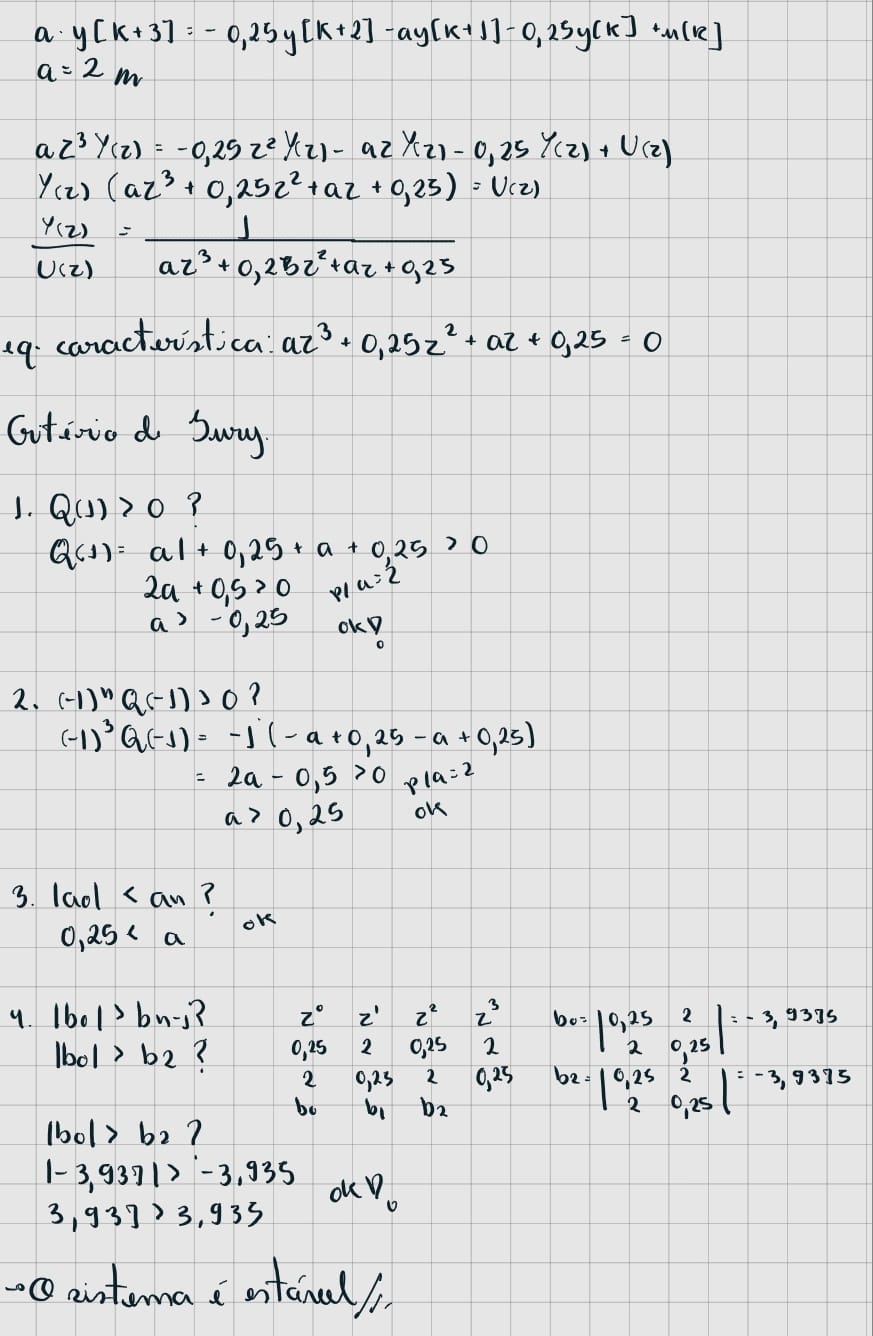 a · y[k+3] = - 0,25y[k+2] - ay[k+1] - 0,25y[k] + u[k]
a = 2 m
aZ³Y(z) = -0,25 z² Y(z) - az Y(z) - 0,25 Y(z) + U(z)
Y(z) (az³ + 0,25z² + az + 0,25) = U(z)
Y(z) = 1
U(z) az³ + 0,25z² + az + 0,25
eq. característica: az³ + 0,25z² + az + 0,25 = 0
Critério de Jury.
1. Q(1) > 0 ?
Q(1) = a1 + 0,25 + a + 0,25 > 0
2a + 0,5 > 0 p/ a=2
a > -0,25 ok!
2. (-1)ⁿ Q(-1) > 0 ?
(-1)³ Q(-1) = -1 (-a + 0,25 - a + 0,25)
= 2a - 0,5 > 0 p/a=2
a > 0,25 ok
3. |a0| < an ?
0,25 < a ok
4. |b0| > bn-1?
|b0| > b2 ?
z⁰ z¹ z² z³
0,25 2 0,25 2
2 0,25 2 0,25
b0 b1 b2
b0 = |0,25 2| = -3,9375
|2 0,25|
b2 = |0,25 2| = -3,9375
|2 0,25|
|b0| > b2 ?
|-3,937| > -3,935
3,937 > 3,935 ok!
→ O sistema é estável //.